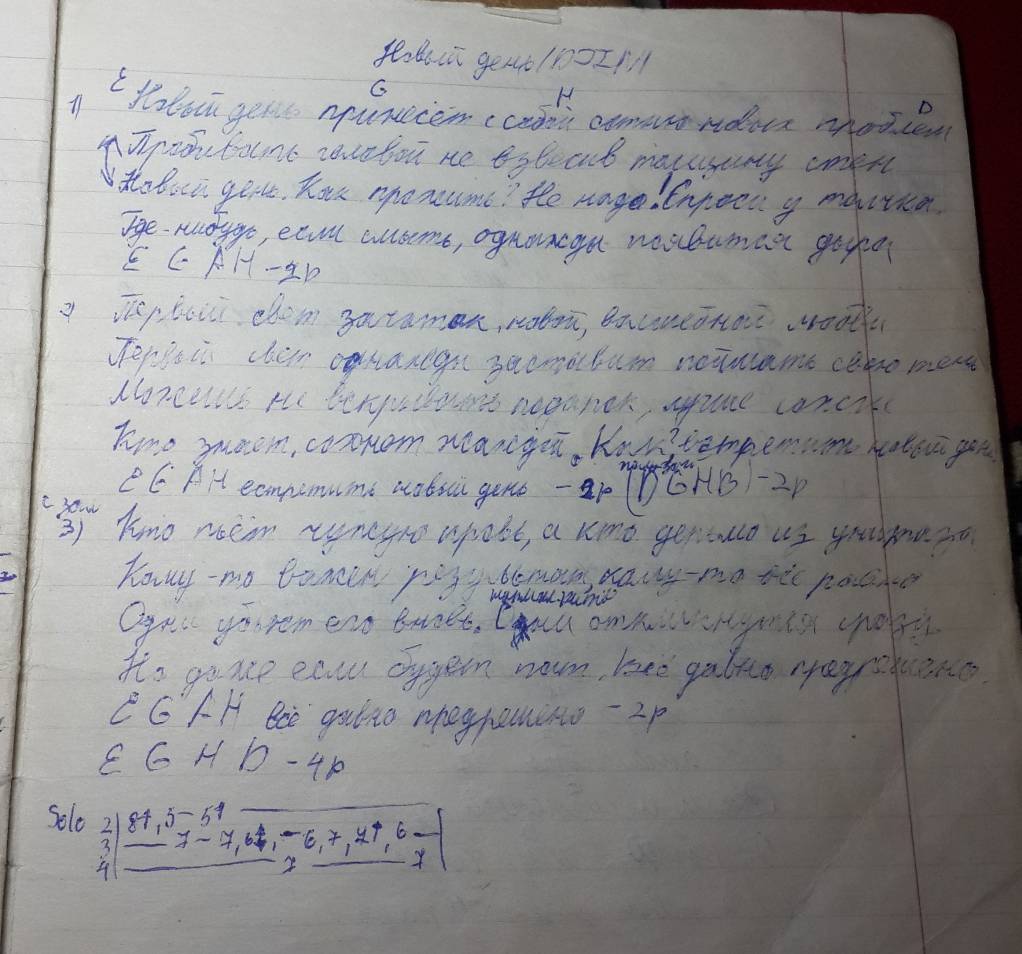 Новый день
E G H D
1) Новый день принесёт с собой сотню новых проблем
Пробивать головой не взвесив толщину стен
Новый день. Как прожить? Не надо! Спроси у толчка.
Где-нибудь, если смыть, однажды появится дыра
E G A H - 2р
2) Первый свет зачаток новой, волшебной любви
Первый свет однажды заставит поймать свою тень
Можешь не вскрывать подарок, лучше сожги
Кто знает, сохнет жаждой. Как? встретить новый день
E G A H встретить новый день - 2р (D G H D) - 2р
3) Кто пьёт чужую кровь, а кто дерьмо из унитаза
Кому-то важен результат, кому-то всё равно
Одни убьют его вновь. Одни откликнутся сразу
Но даже если будет пат, Всё давно предрешено.
E G A H всё давно предрешено - 2р
E G H D - 4р
Solo 2 8↑, 5 - 5↑
3 7 - 7, 6↑, - 6, 7, 7↑, 6 -
4 7 7